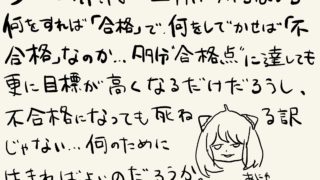 何をすれば「合格」で何をしでかせば「不
合格」なのか…多分“合格点”に達しても
更に目標が高くなるだけだろうし、
不合格になっても死ねる訳
じゃない…何のために
生きればよいのだろうか